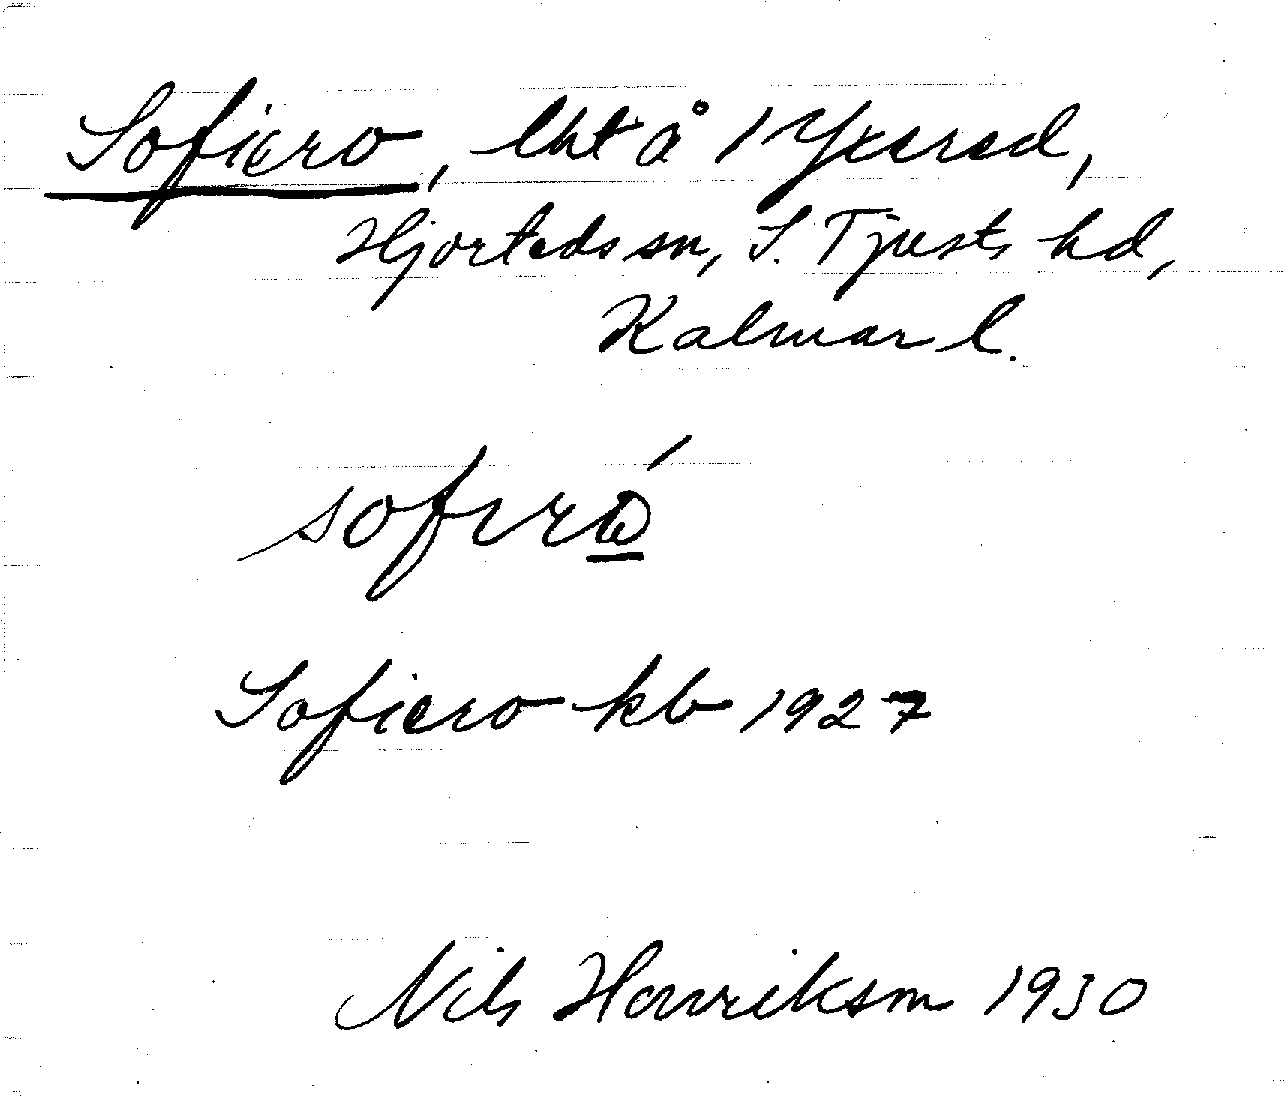 Sofiero, lht å 1 Yxered,
Hjorteds sn, S. Tjusts hd,
Kalmar l.
Sofiero kb 1927
Nils Henriksson 1930